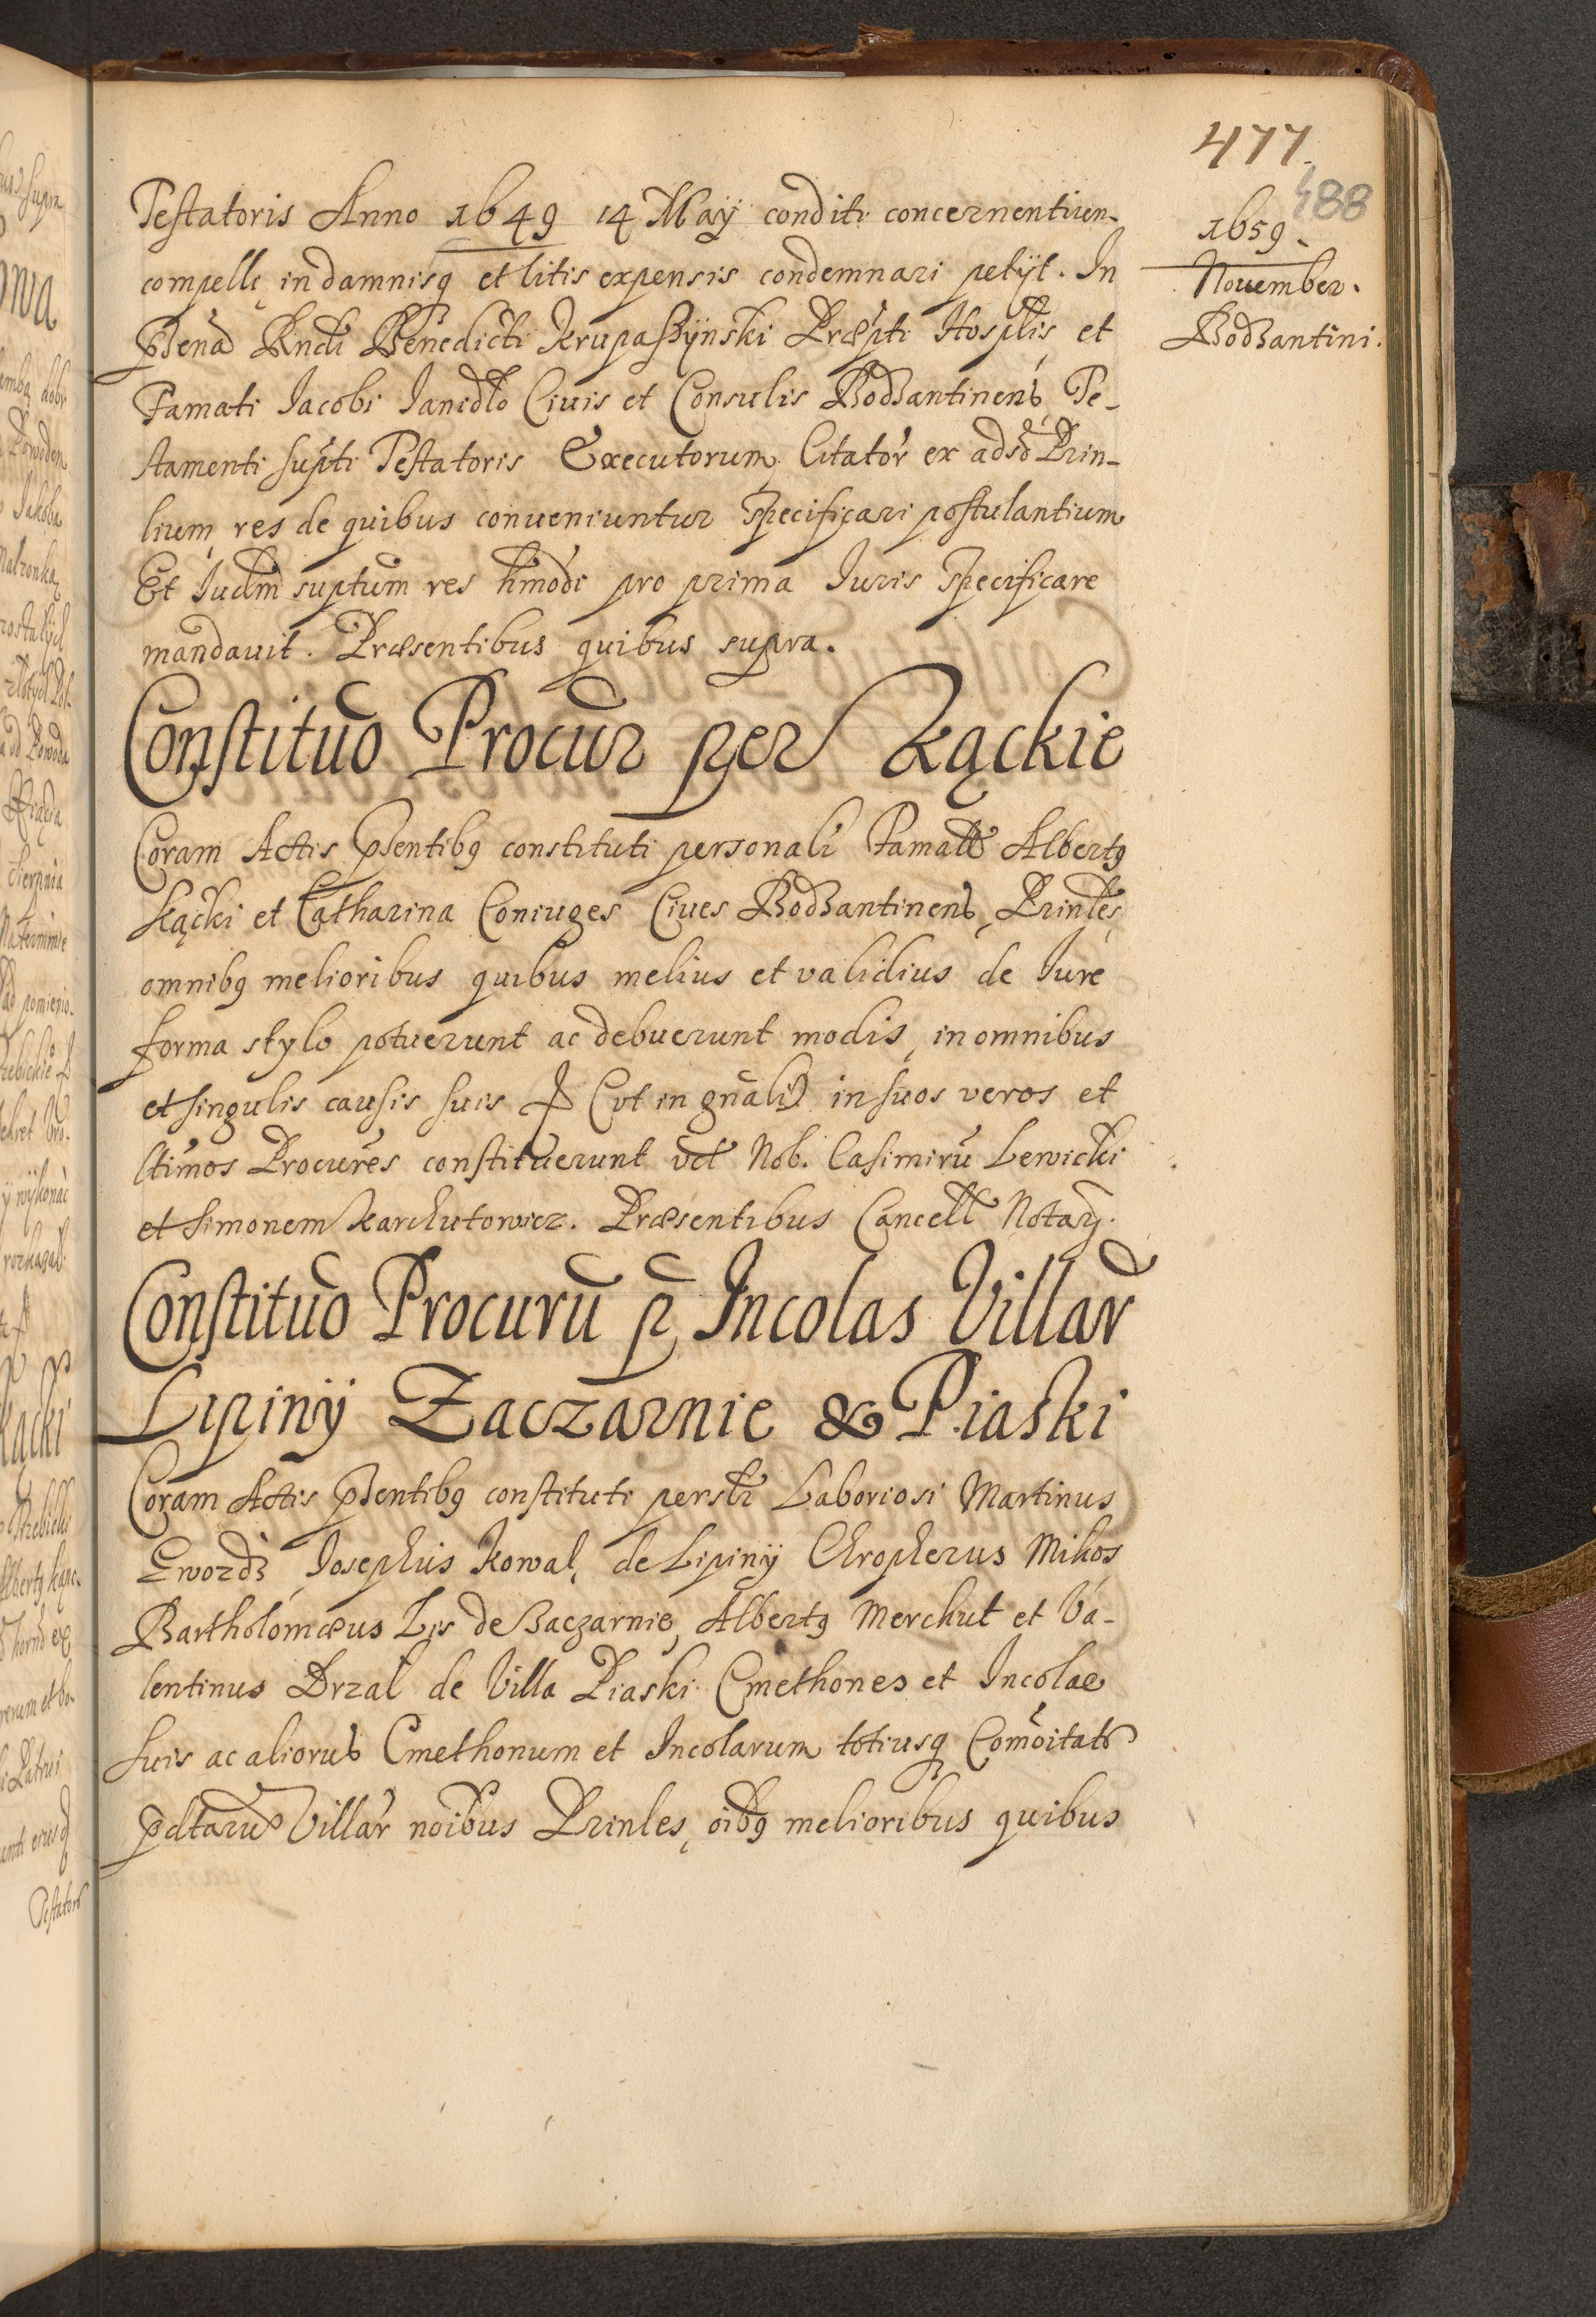 477.
488
1659.
November.
Bodzantini.
Testatoris Anno 1649 14 Maÿ conditi concernentium
compelli, in damnisq et litis expensis condemnari petÿt. In
Pñtia Rndi Benedicti Krupaszÿnski Præpti Hosplis, et
Famati Jacobi Janidło Civis et Consulis Bodzantinens, Te-
stamenti supti Testatoris Executorum, Citator ex adso Prin-
lium, res de quibus conveniuntur specificari postulantium
Et Iudm suptum res hmodi pro prima Iuris specificare
mandavit. Præsentibus quibus supra.
Constituo Procur per Kąckie
Coram Actis pñtibq constituti personali Famati Albertq
Kącki et Catharina Coniuges Cives Bodzantinens, Prinles,
omnibq melioribus quibus melius et validius de Iure
forma stylo potuerunt ac debuerunt modis, in omnibus
et singulis causis suis (vt in gnali) in suos veros et
ltimos Procures constituerunt vdt Nob. Casimirū Lewicki
et Simonem Karchutowicz. Præsentibus Cancell Notarÿ.
Constituo Procurū p Incolas Villar
Lipinÿ Zaczarnie & Piaski
Coram Actis pñtibq constituti persli Laboriosi Martinus
Gwozdz, Josephus Kowal, de Lipinÿ Chropherus Mikos,
Bartholomæus Lis de Zaczarnie, Albertq Merchut et Va-
lentinus Drzal de Villa Piaski Cmethones et Incolae
suis ac aliorus Cmethonum et Incolarum totiusq Comoitatis
pdtaru Villar noibus Prinles, oibq melioribus quibus